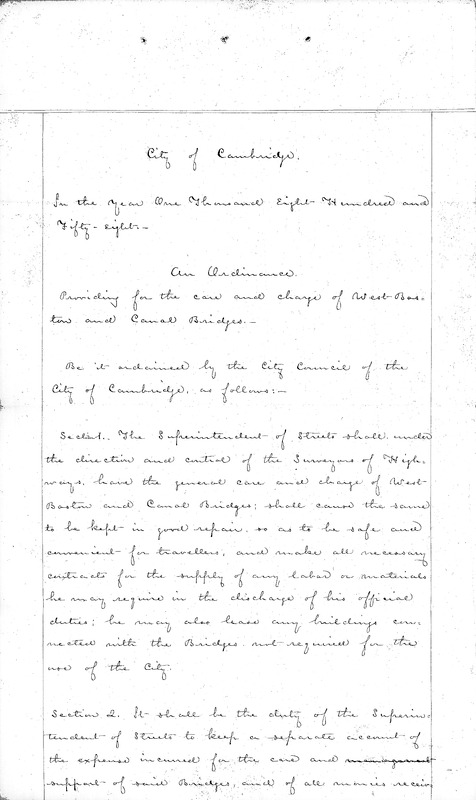 City of Cambridge.
In the Year One Thousand Eight Hundred and
Fifty-eight.-
An Ordinance.
Providing for the care and charge of West Bos-
ton and Canal Bridges.-
Be it ordained by the City Council of the
City of Cambridge, as follows:-
Sect. 1. The Superintendent of Streets shall, under
the direction and control of the Surveyors of High-
ways, have the general care and charge of West
Boston and Canal Bridges; shall cause the same
to be kept in good repair, so as to be safe and
convenient for travellers, and make all necessary
contracts for the supply of any labor or materials
he may require in the discharge of his official
duties; he may also lease any buildings con-
nected with the Bridges not required for the
use of the City.
Section 2. It shall be the duty of the Superin-
tendent of Streets to keep a separate account of
the expense incurred for the care and management
support of said Bridges, and of all monies receiv